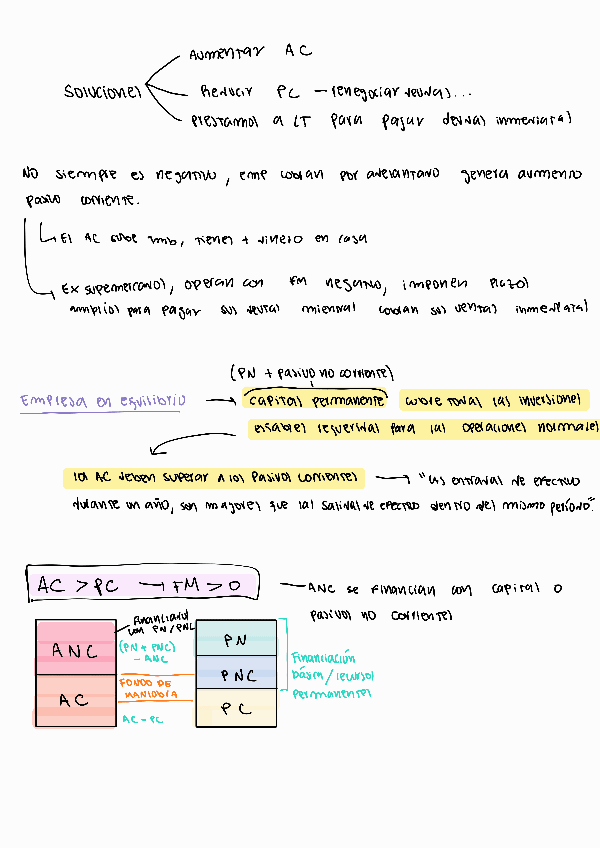 Aumentar AC
Soluciones
Reducir PC → renegociar deudas...
Prestamos a LT para pagar deudas inmediatas
No siempre es negativo, emp cobran por adelantado genera aumento
pasivo corriente.
El AC sube tmb, tienes + dinero en casa
Ex supermercados, operan con FM negativo, imponen plazos
amplios para pagar sus deudas mientras cobran sus ventas inmediatas
(PN + pasivo no corriente)
Empresa en equilibrio → capitales permanente cubre todas las inversiones
estables requeridas para las operaciones normales
los AC deben superar a los pasivos corrientes → "Las entradas de efectivo
durante un año, son mayores que las salidas de efectivo dentro del mismo período."
AC > PC → FM > 0 — ANC se financian con capital o
pasivos no corrientes
Financiados
con PN/PNC
ANC
(PN + PNC)
- ANC
FONDO DE
MANIOBRA
AC
AC - PC
PN
PNC
PC
Financiación
básica/recursos
permanentes